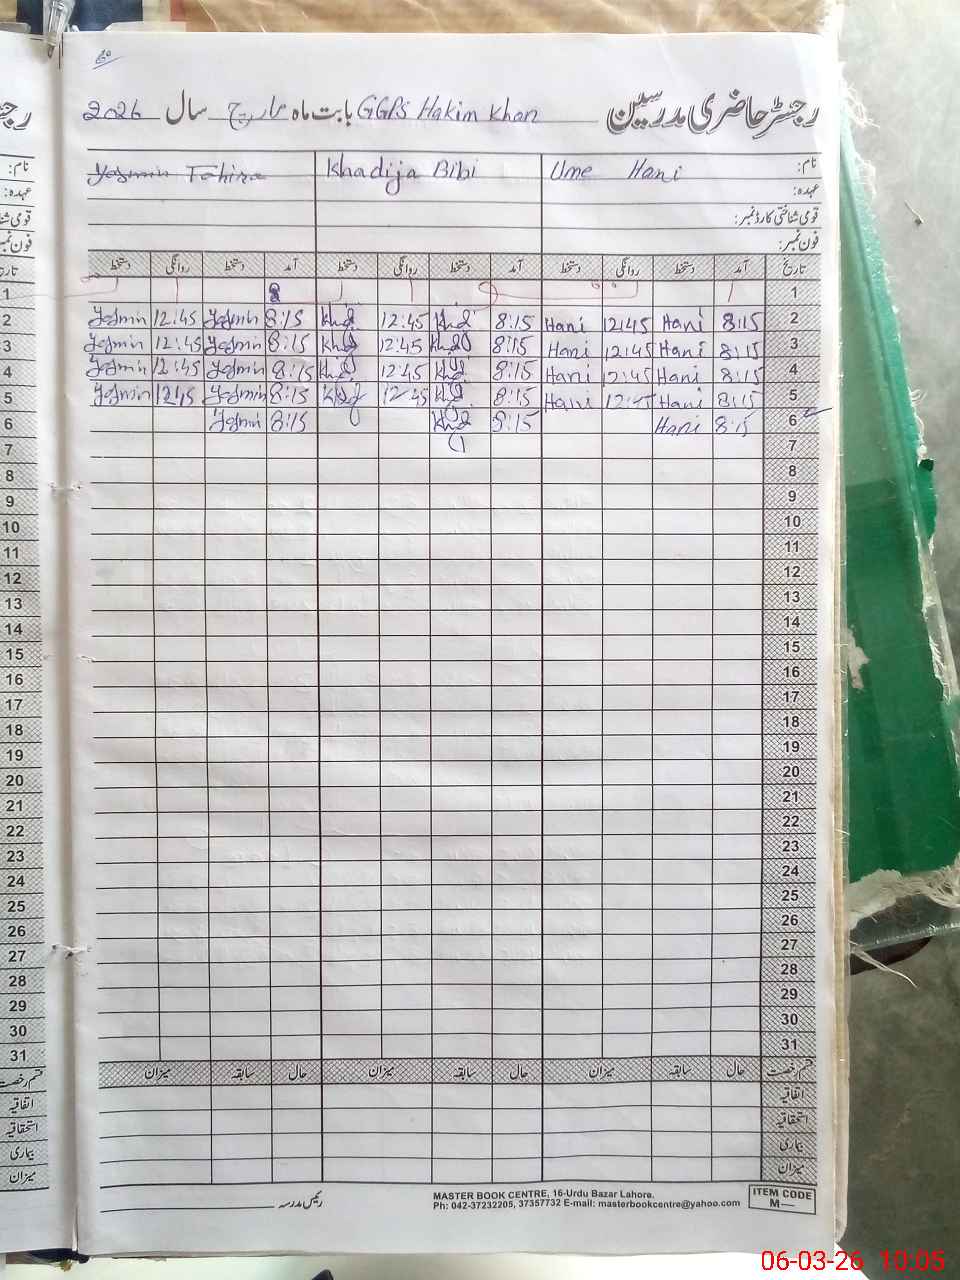 رجسٹر حاضری مدرسین GGPS Hakim Khan بابت ماہ مارچ سال 2026
نام: Ume Hani Khadija Bibi Yasmin Tahira
عہدہ:
قومی شناختی کارڈ نمبر:
فون نمبر:
تاریخ آمد دستخط روانگی دستخط آمد دستخط روانگی دستخط آمد دستخط روانگی دستخط
1
2 8:15 Hani 12:45 Hani 8:15 Khd 12:45 Khd 8:15 Yasmin 12:45 Yasmin
3 8:15 Hani 12:45 Hani 8:15 Khd 12:45 Khd 8:15 Yasmin 12:45 Yasmin
4 8:15 Hani 12:45 Hani 8:15 Khd 12:45 Khd 8:15 Yasmin 12:45 Yasmin
5 8:15 Hani 12:45 Hani 8:15 Khd 12:45 Khd 8:15 Yasmin 12:45 Yasmin
6 8:15 Hani 8:15 Khd 8:15 Yasmin
7
8
9
10
11
12
13
14
15
16
17
18
19
20
21
22
23
24
25
26
27
28
29
30
31
قسم رخصت حال سابقہ میزان حال سابقہ میزان حال سابقہ میزان
اتفاقیہ
استحقاقیہ
بیماری
میزان
رئیس مدرسہ
MASTER BOOK CENTRE, 16-Urdu Bazar Lahore.
Ph: 042-37232205, 37357732 E-mail: masterbookcentre@yahoo.com
ITEM CODE
M—
06-03-26 10:05